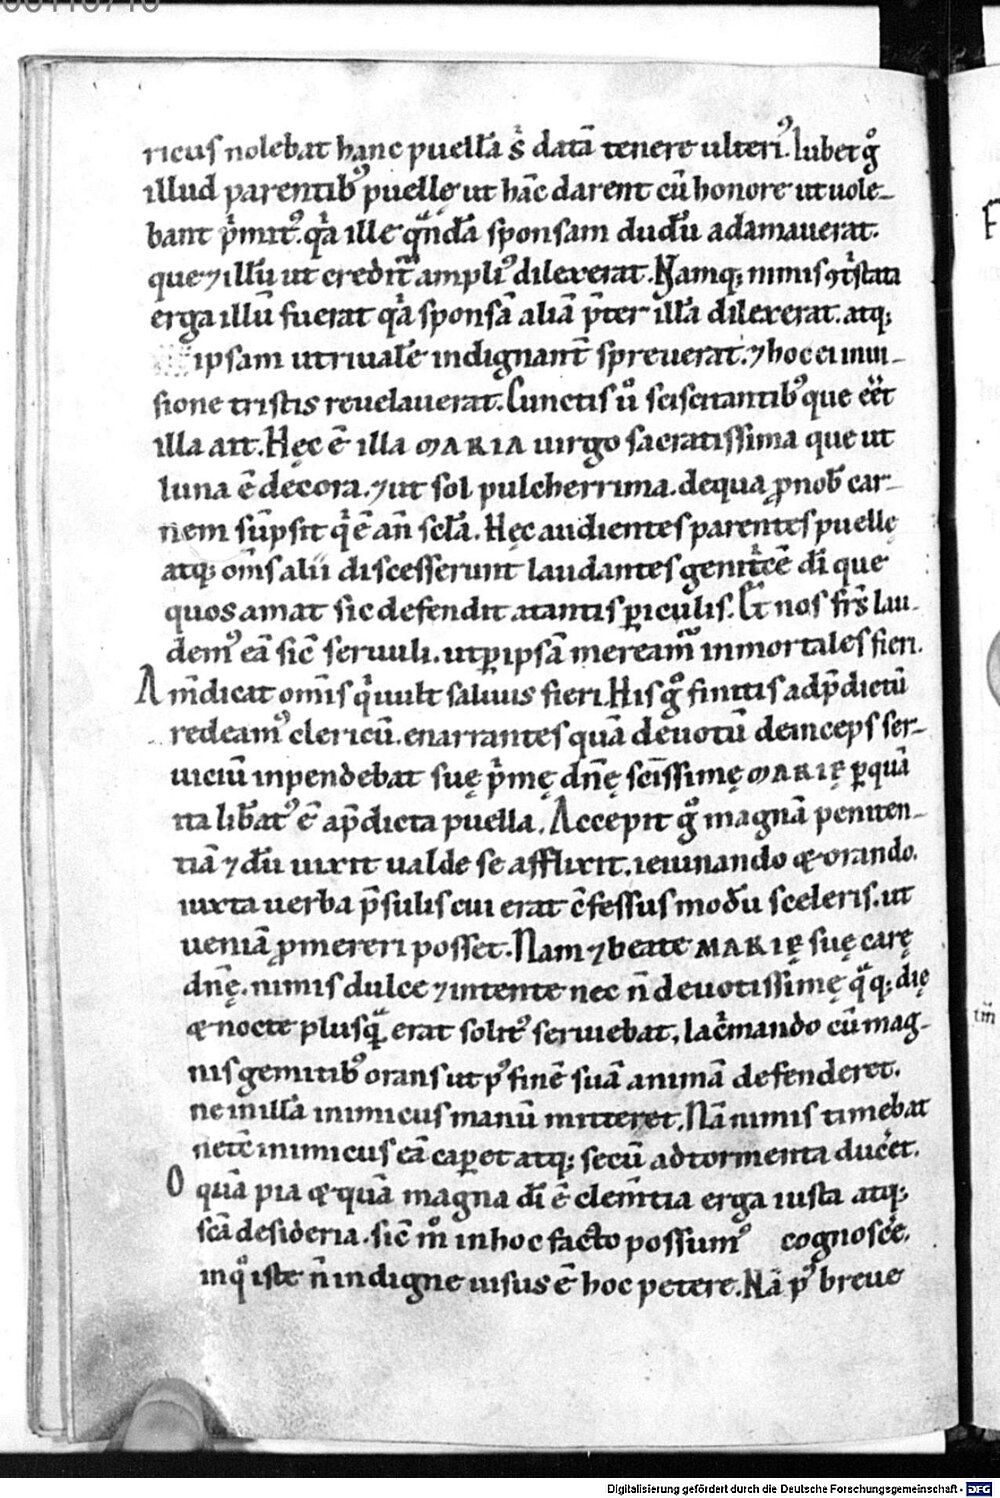 ricus nolebat hanc puellā s; datā tenere ulteri᾽. Iubet gͦ
illud parentib᾽ puellę ut hāc darent cū honore ut uole-
bant p̄mit᾽. qͥa ille qͣndā sponsam dudū adamauerat.
que ⁊ illū ut credit̄ ampli᾽ dilexerat. Namq; nimis ↄtͥstata
erga illū fuerat qͥa sponsā aliā p̄ter illā dilexerat. atq;
ipsam ut riualē indignant̄ spreuerat. ⁊ hoc ei in ui-
sione tristis reuelauerat. Cunctis ū sciscitantib᾽ que eēt
illa ait. Hęc ē illa MARIA uirgo sacratissima que ut
luna ē decora. ⁊ ut sol pulcherrima. de qua ꝓ nob̄ car-
nem sūpsit qͥ ē an̄ sclā. Hęc audientes parentes puellę
atq; om̄s alii discesserunt laudantes genitͥcē dī que
quos amat sic defendit a tantis ꝑiculis. Et nos frs̄ lau-
dem᾽ eā sic̄ seruuli. ut ꝑ ipsā meream̄ inmortales fieri.
Am̄ dicat om̄is qͥ uult saluus fieri. His gͦ finitis ad p̄dictū
redeam᾽ clericū. enarrantes quā deuotū deinceps ser-
uiciū inpendebat suę pͥmę dn̄ę sc̄issimę MARIĘ ꝑ quā
ita lib̄at᾽ ē a p̄dicta puella. Accepit gͦ magnā peniten-
tiā ⁊ dū uixit ualde se afflixit. ieiunando & orando.
iuxta uerba p̄sulis cui erat c̄fessus modū sceleris. ut
ueniā ꝓmereri posset. Nam ⁊ beate MARIĘ suę carę
dn̄ę. nimis dulce ⁊ intente nec n̄ deuotissimę qͣq; die
& nocte plusqͣ erat solit᾽ seruiebat, lacͥmando cū mag-
nis gemitib᾽ orans ut p᾽ finē suā animā defenderet.
ne in illā inimicus manū mitteret. Nā nimis timebat
ne tc̄ inimicus eā caꝑet atq; secū ad tormenta duc̄et.
O quā pia & quā magna dī ē clem̄tia erga iusta atq;
sc̄a desideria. sic̄ mͦ in hoc facto possum᾽ cognosc̄e.
in qͦ iste n̄ indigne uisus ē hoc petere. Nā p᾽ breue
Digitalisierung gefördert durch die Deutsche Forschungsgemeinschaft - DFG